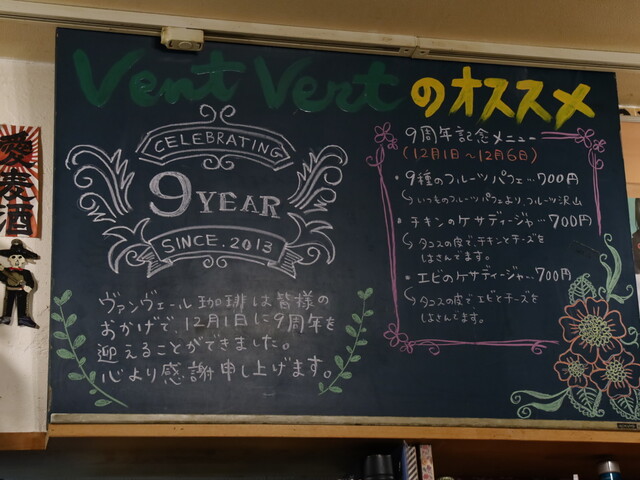 Vent Vertのオススメ
CELEBRATING
9 YEAR
SINCE.2013
ヴァンヴェール珈琲は皆様の
おかげで、12月1日に9周年を
迎えることができました。
心より感謝申し上げます。
9周年記念メニュー
(12月1日〜12月6日)
・9種のフルーツパフェ…700円
いつものフルーツパフェより、フルーツ沢山
・チキンのケサディージャ…700円
タコスの皮で、チキンとチーズを
はさんでます。
・エビのケサディージャ…700円
タコスの皮で エビとチーズを
はさんでます。